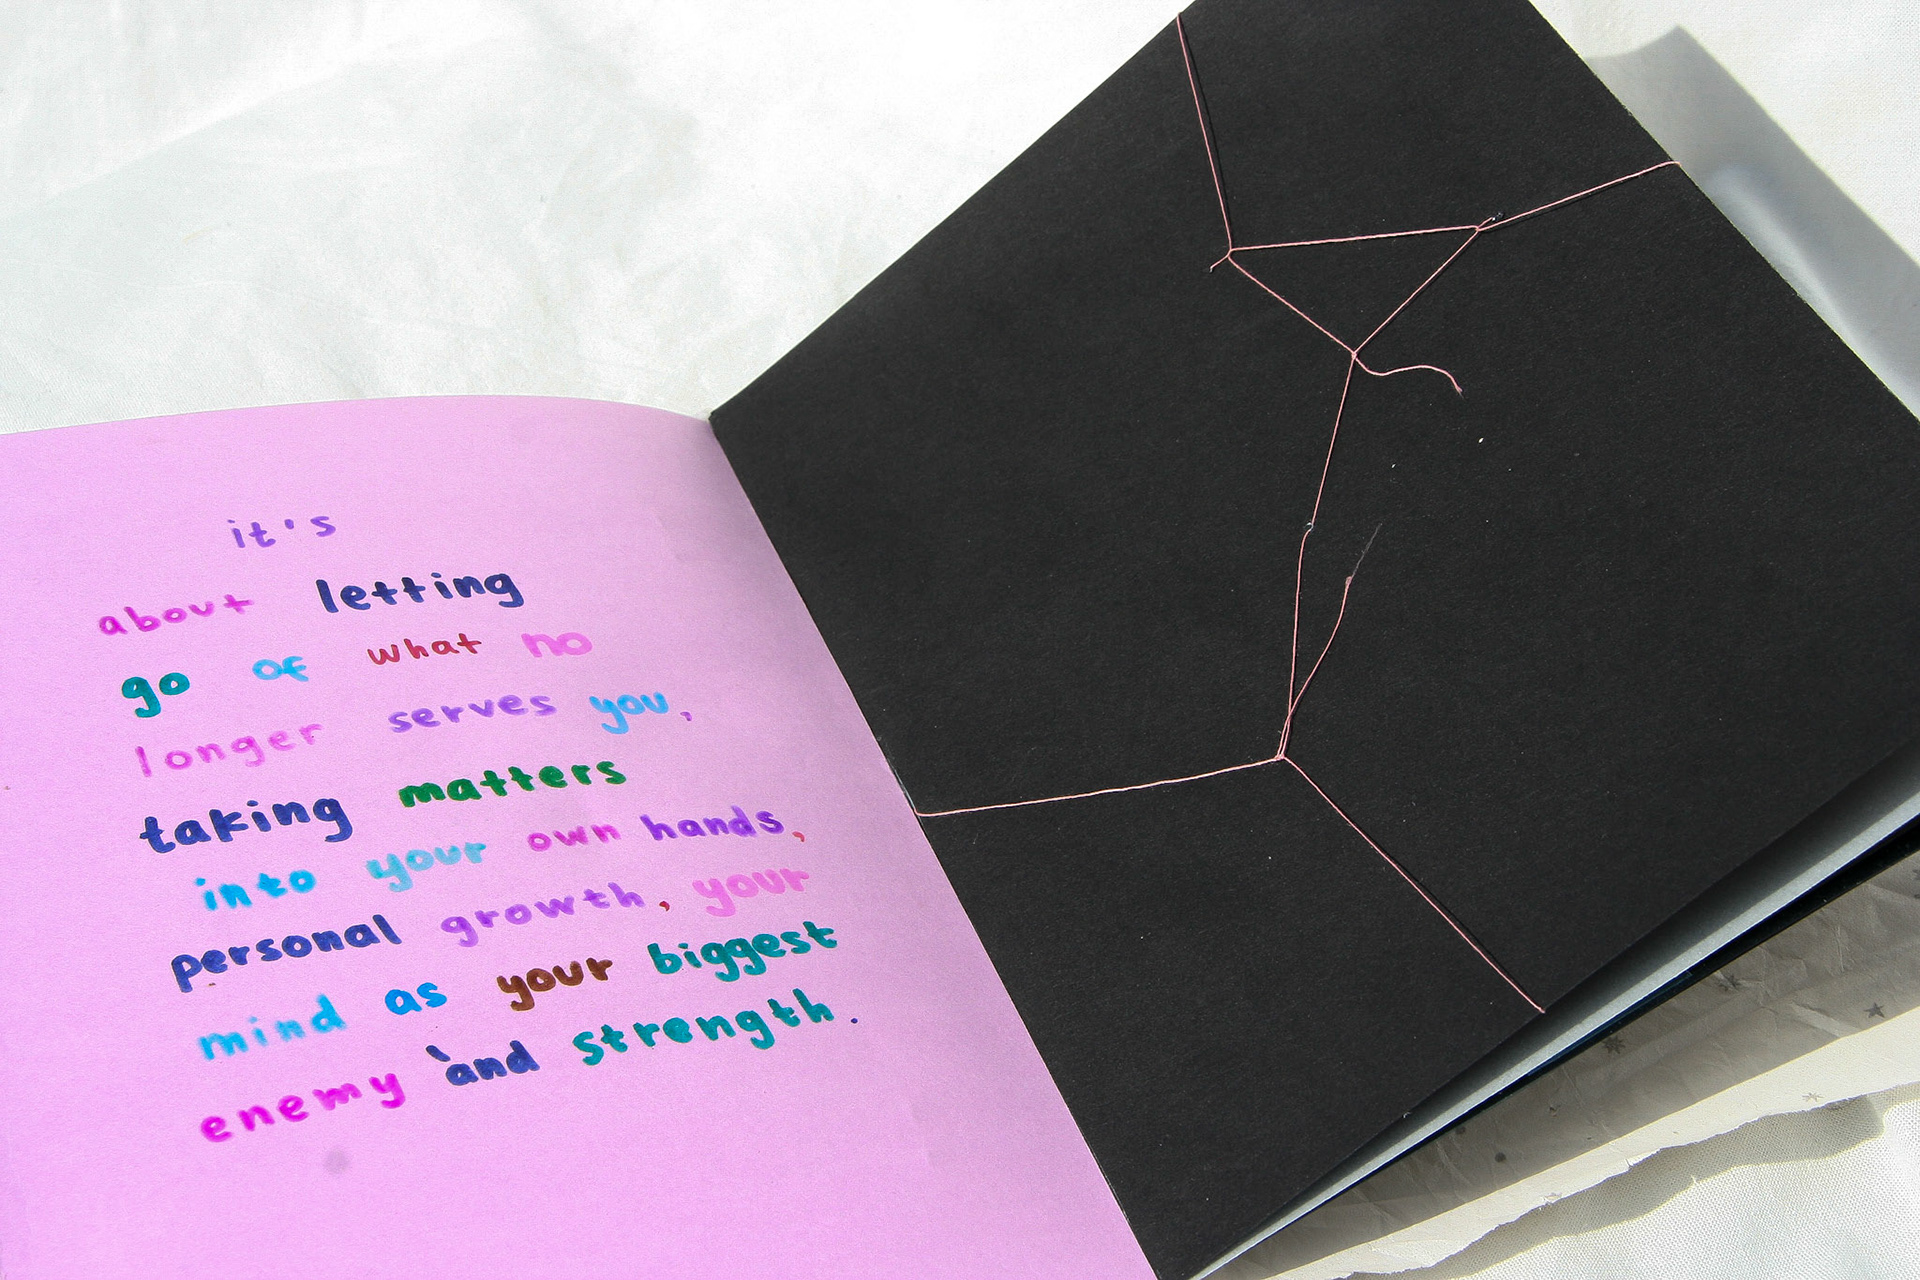 it's
about letting
go of what no
longer serves you,
taking matters
into your own hands,
personal growth, your
mind as your biggest
enemy and strength.